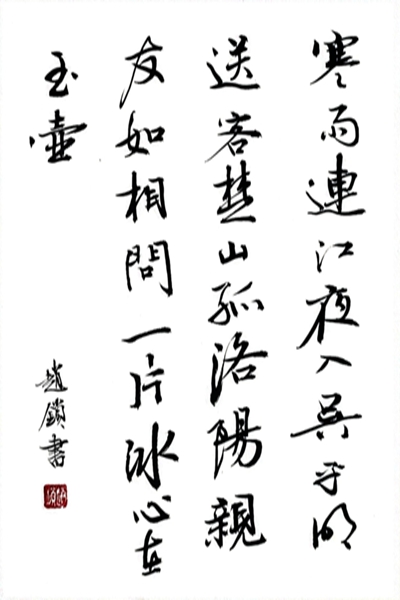 寒雨連江夜入吳平明
送客楚山孤洛陽親
友如相問一片冰心在
玉壺
趙鎖書